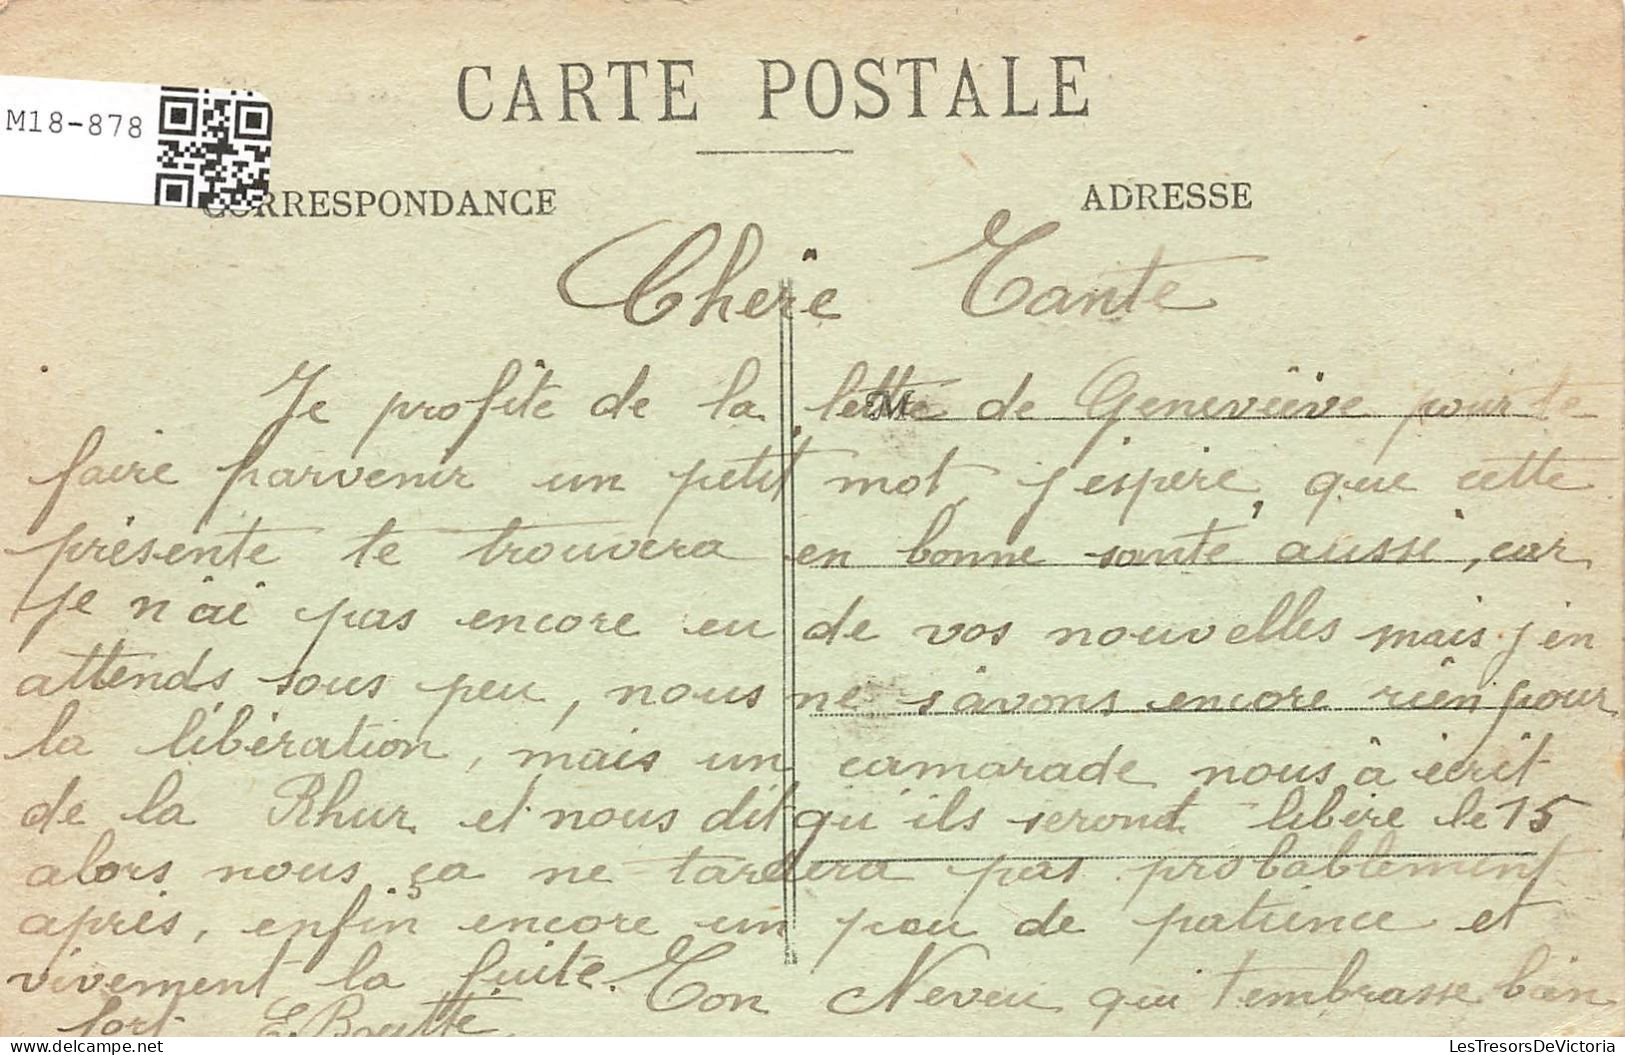 CARTE POSTALE
M18-878
CORRESPONDANCE
ADRESSE
Chère Tante
Je profite de la lettre de Geneviève pour te
faire parvenir un petit mot, j'espère, que cette
présente te trouvera en bonne santé aussi, car
je n'ai pas encore eu de vos nouvelles mais j'en
attends sous peu, nous ne savons encore rien pour
la libération, mais un camarade nous à écrit
de la Rhur et nous dit qu'ils seront libéré le 15
alors nous ça ne tardera pas probablement
après, enfin encore un peu de patience et
vivement la fuite. Ton Neveu qui t'embrasse bien
fort E.
LesTresorsDeVictoria